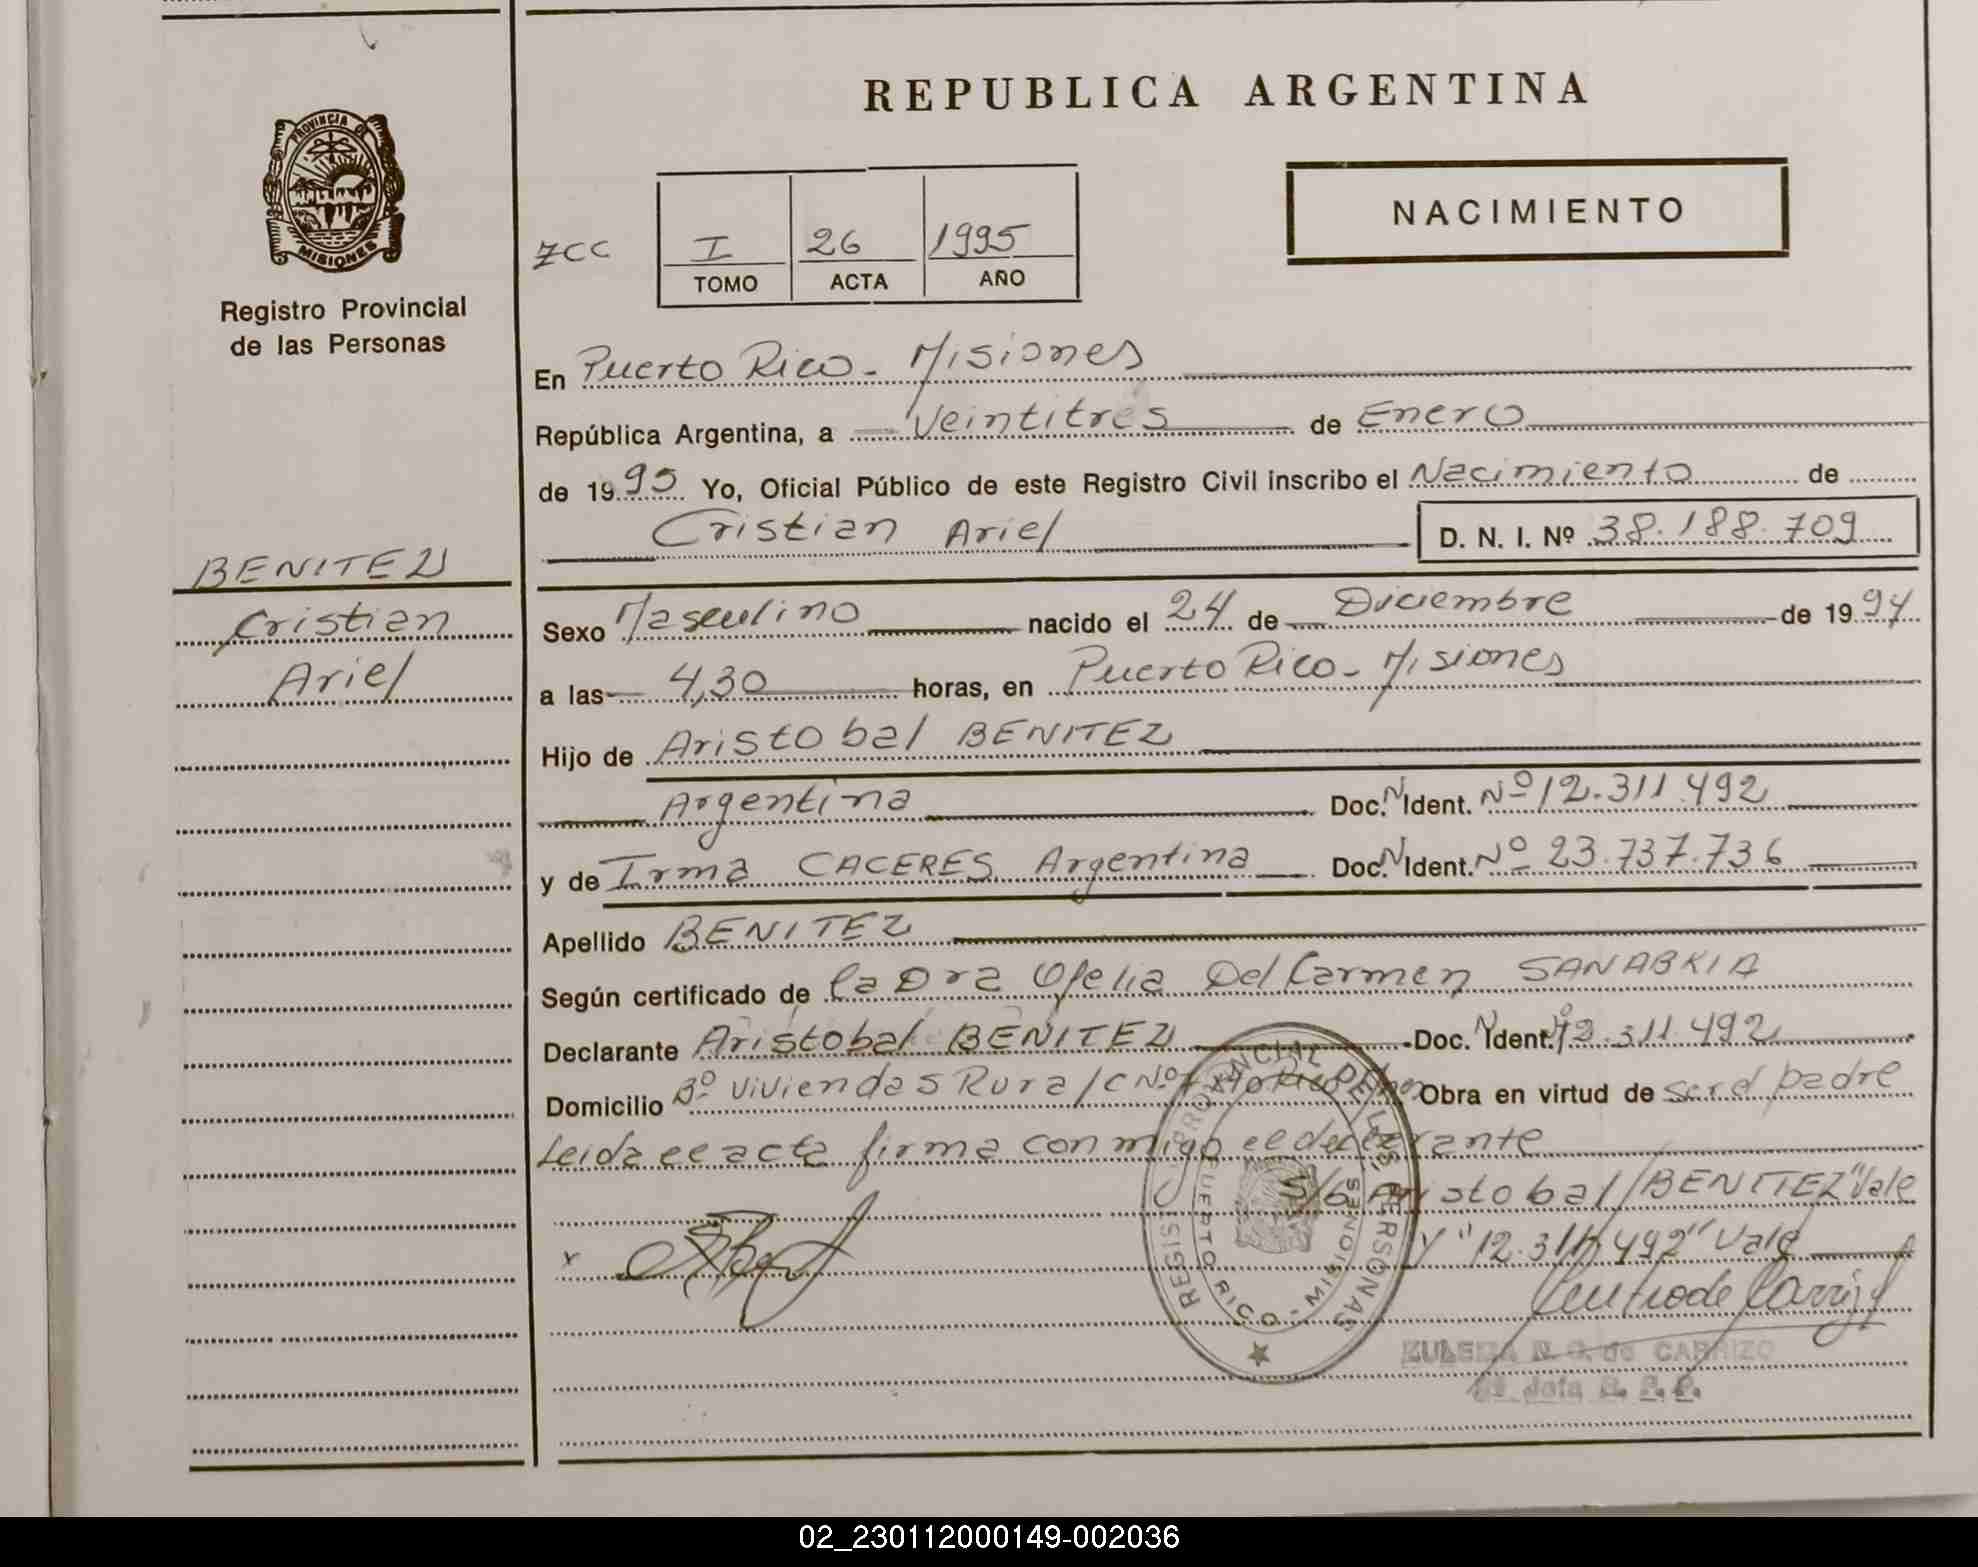 REPUBLICA ARGENTINA
PROVINCIA DE
MISIONES
Registro Provincial
de las Personas
ZCC
I 26 1995
TOMO ACTA AÑO
NACIMIENTO
En Puerto Rico - Misiones
República Argentina, a Veintitres de Enero
de 1995 Yo, Oficial Público de este Registro Civil inscribo el Nacimiento de
Cristian Ariel D. N. I. Nº 38.188.709
BENITEZ
Cristian
Ariel
Sexo Masculino nacido el 24 de Diciembre de 1994
a las 4,30 horas, en Puerto Rico - Misiones
Hijo de Aristobal BENITEZ
Argentina Doc. N. Ident. Nº 12.311.492
y de Irma CACERES Argentina Doc. N. Ident. Nº 23.737.736
Apellido BENITEZ
Según certificado de la Dra Ofelia Del Carmen SANABRIA
Declarante Aristobal BENITEZ Doc. N. Ident. Nº 12.311.492
Domicilio Bº Viviendas Rural C Nº Pto Rico Obra en virtud de ser el padre
Leida el acta firma conmigo el declarante
S/b Aristobal BENITEZ "Vale
Y "12.311.492" Vale
x
REGISTRO PROVINCIAL DE LAS PERSONAS
PUERTO RICO - MISIONES
ZULEMA N. C. de CARRIZO
Jefa R. P. P.
02_230112000149-002036